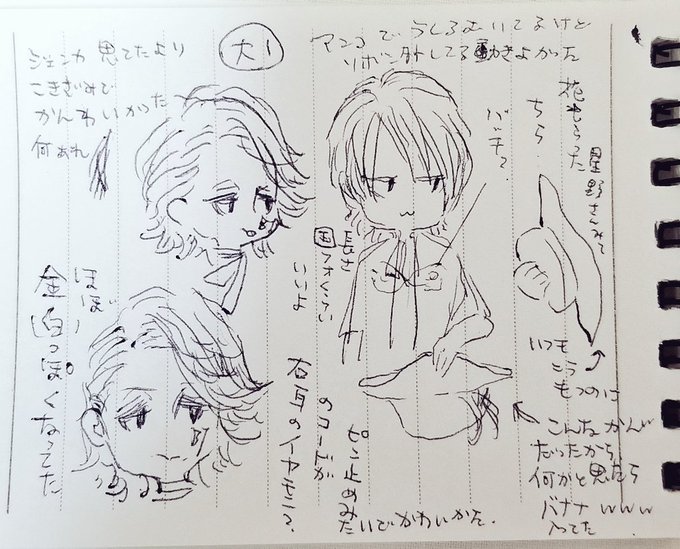 ジェンカ 思てたより
こきざみで
かんわいかった
何あれ
大!
マンゴでうしろむいてるけど
リボン外してる動きよかった
花もらった
ちら…
星野さんみて
バッチ?
長さ
国フォくらい
いいよ
ほぼー
全白っぽくなってた
右耳のイヤモニ?
のコードが
ピン止めみ
たいでかわいかた。
いつも
こう
もつのに
こんなかんじ
だったから
何かと思たら
バナナwww
入ってた